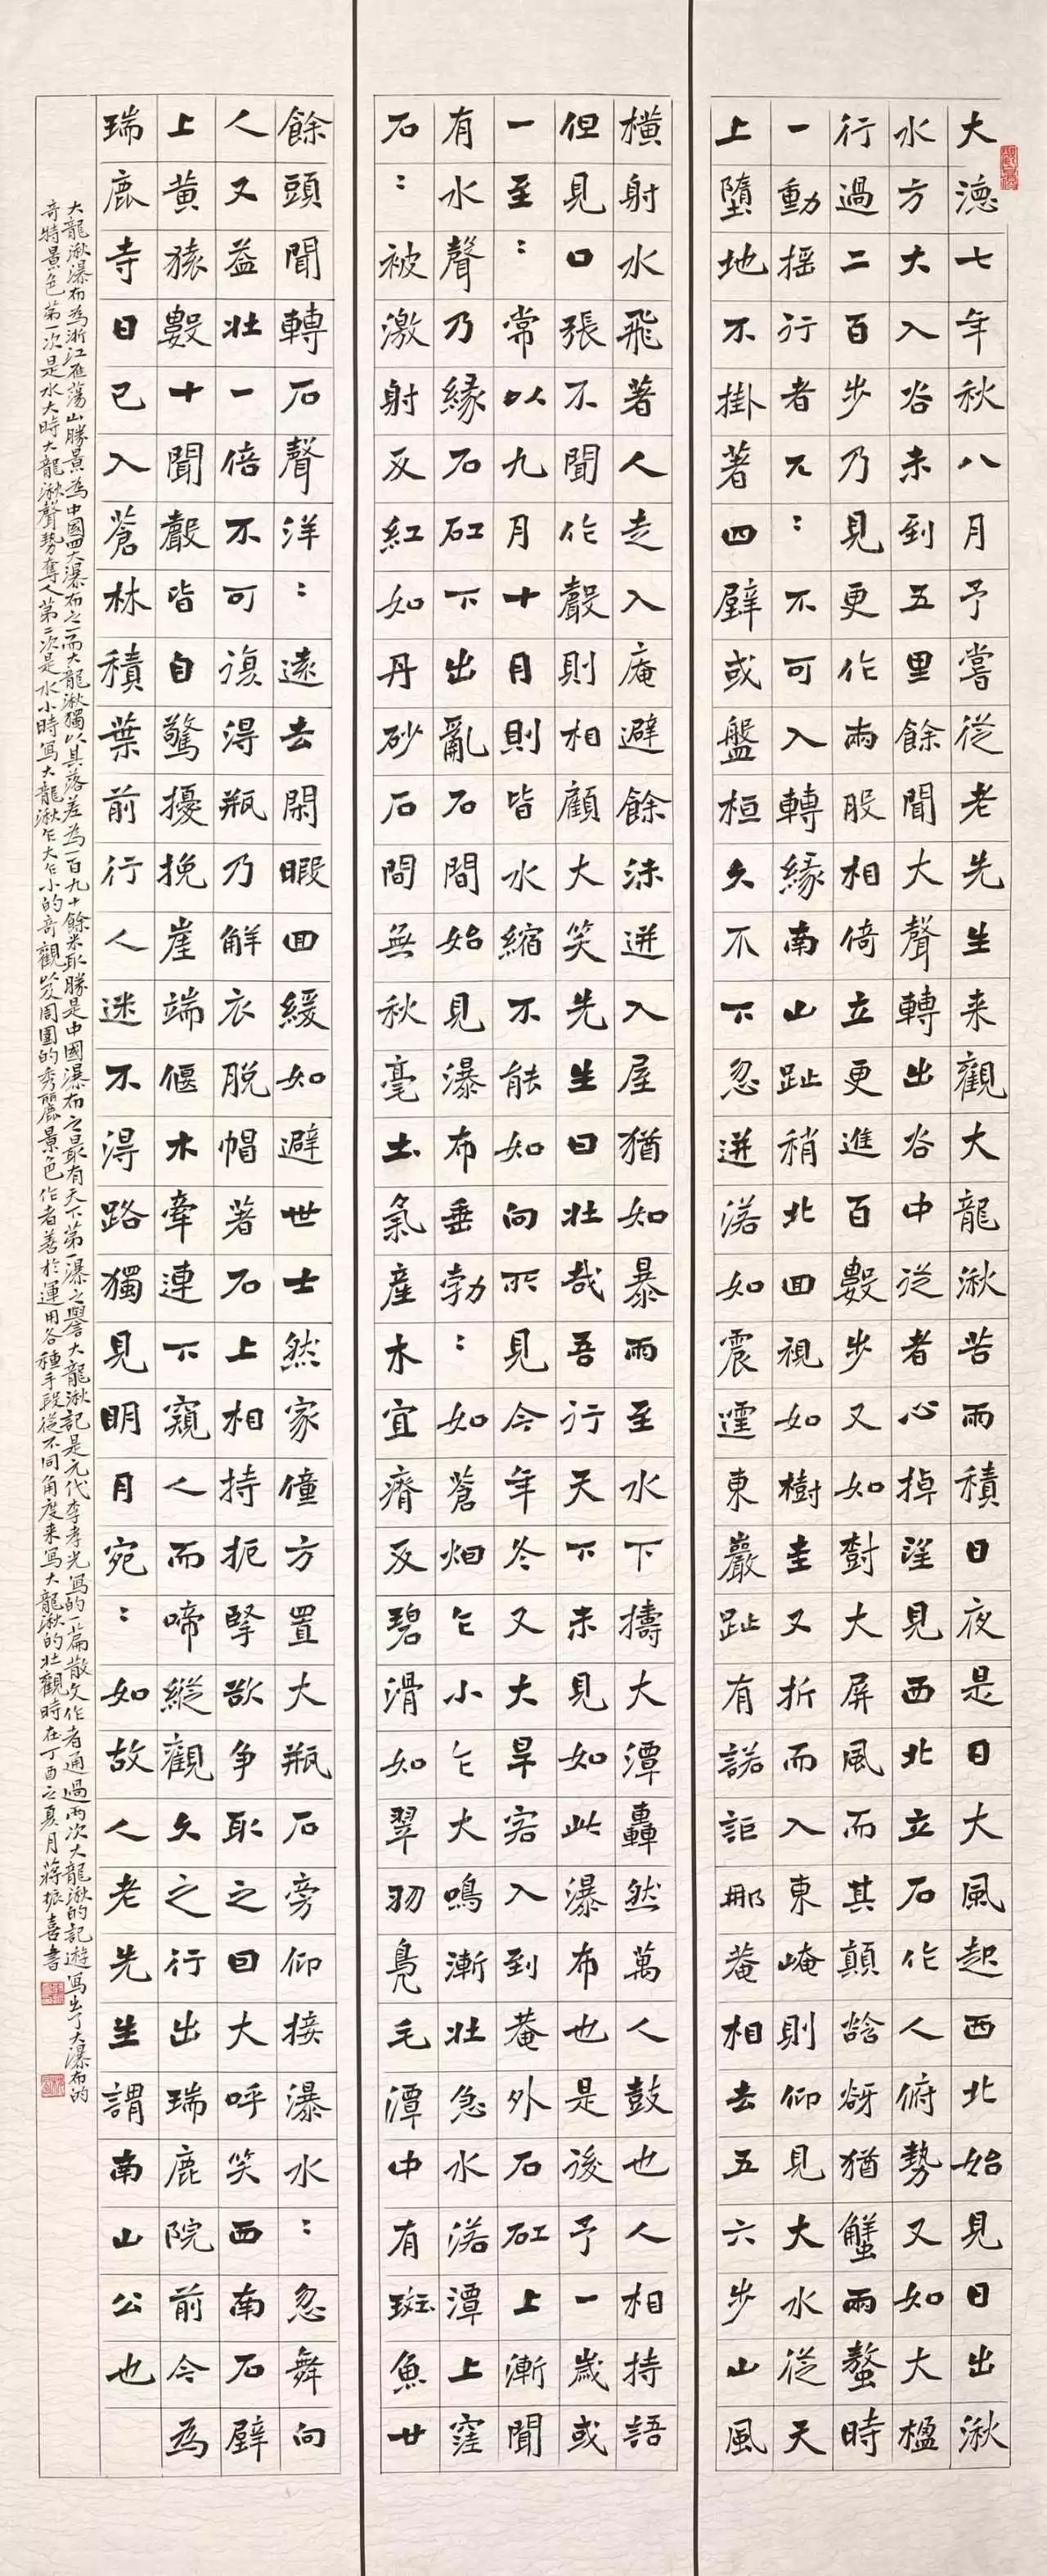 大德七年秋八月予嘗從老先生来觀大龍湫苦雨積日夜是日大風起西北始見日出湫
水方大入谷未到五里餘聞大聲轉出谷中從者心掉望見西北立石作人俯勢又如大楹
行過二百步乃見更作兩股相倚立更進百數步又如尌大屏風而其顛谽谺猶蟹兩螯時
一動揺行者兀：不可入轉緣南山趾稍北回視如樹圭又折而入東崦則仰見大水從天
上墮地不掛著四壁或盤桓久不下忽迸落如震霆東巖趾有諾詎那菴相去五六步山風
橫射水飛著人走入庵避餘沫迸入屋猶如暴雨至水下擣大潭轟然萬人鼓也人相持語
但見口張不聞作聲則相顧大笑先生曰壯哉吾行天下未見如此瀑布也是後予一歲或
一至：常以九月十月則皆水縮不能如向所見今年冬又大旱客入到菴外石矼上漸聞
有水聲乃緣石矼下出亂石間始見瀑布垂勃：如蒼烟乍小乍大鳴漸壯急水落潭上窪
石：被激射反紅如丹砂石間無秋毫土氣産木宜瘠反碧滑如翠羽鳧毛潭中有斑魚廿
餘頭聞轉石聲洋：遠去閑暇回緩如避世士然家僮方置大瓶石旁仰接瀑水：忽舞向
人又益壯一倍不可復得瓶乃解衣脱帽著石上相持扼掔欲争取之曰大呼笑西南石壁
上黃猿數十聞聲皆自驚擾挽崖端偃木牽連下窺人而啼縱觀久之行出瑞鹿院前今為
瑞鹿寺日已入蒼林積葉前行人迷不得路獨見明月宛：如故人老先生謂南山公也
大龍湫瀑布為浙江雁蕩山勝景為中國四大瀑布之一而大龍湫獨以其落差為一百九十餘米取勝是中國瀑布之最有天下第一瀑之譽大龍湫記是元代李孝光寫的一篇散文作者通過兩次大龍湫的記遊寫出了大瀑布的
奇特景色第一次是水大時大龍湫聲勢奪人第二次是水小時寫大龍湫乍大乍小的奇觀以及周圍的秀麗景色作者善於運用各種手段從不同角度来寫大龍湫的壯觀時在丁酉之夏月蔣振喜書